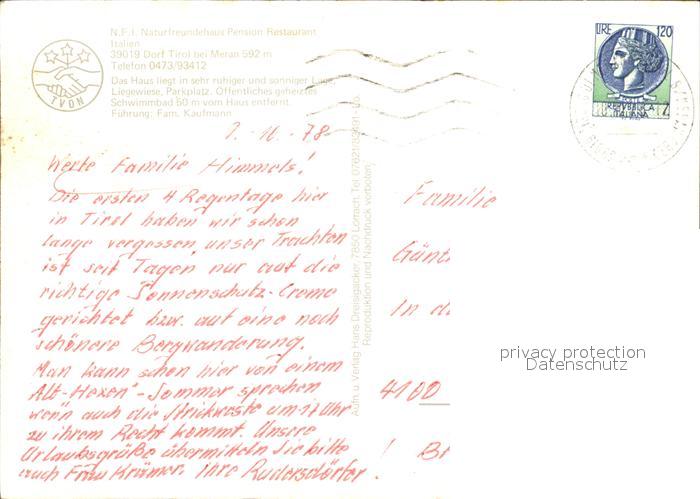 N.F.I. Naturfreundehaus Pension Restaurant
Italien
39019 Dorf Tirol bei Meran 592 m
Telefon 0473/93412
Das Haus liegt in sehr ruhiger und sonniger Lage,
Liegewiese, Parkplatz. Öffentliches geheiztes
Schwimmbad 50 m vom Haus entfernt.
Führung: Fam. Kaufmann
TVDN
LIRE 120
REPVBBLICA
ITALIANA
78
Werte Familie Himmels!
Die ersten 4 Regentage hier
in Tirol haben wir schon
lange vergessen, unser Trachten
ist seit Tagen nur auf die
richtige Sonnenschutz-Creme
gerichtet bzw. auf eine noch
schönere Bergwanderung.
Man kann schon hier von einem
Alt-Hexen"-Sommer sprechen
wenn auch die Strickweste um 17 Uhr
zu ihrem Recht kommt. Unsere
Urlaubsgrüße übermitteln Sie bitte
auch Frau Krämer. Ihre Rudersdorfer!
Aufn. u. Verlag Hans Dreisigacker, 7850 Lörrach, Tel. 07621/
Reproduktion und Nachdruck verboten
Familie
Günt
In d
4100
B
privacy protection
Datenschutz